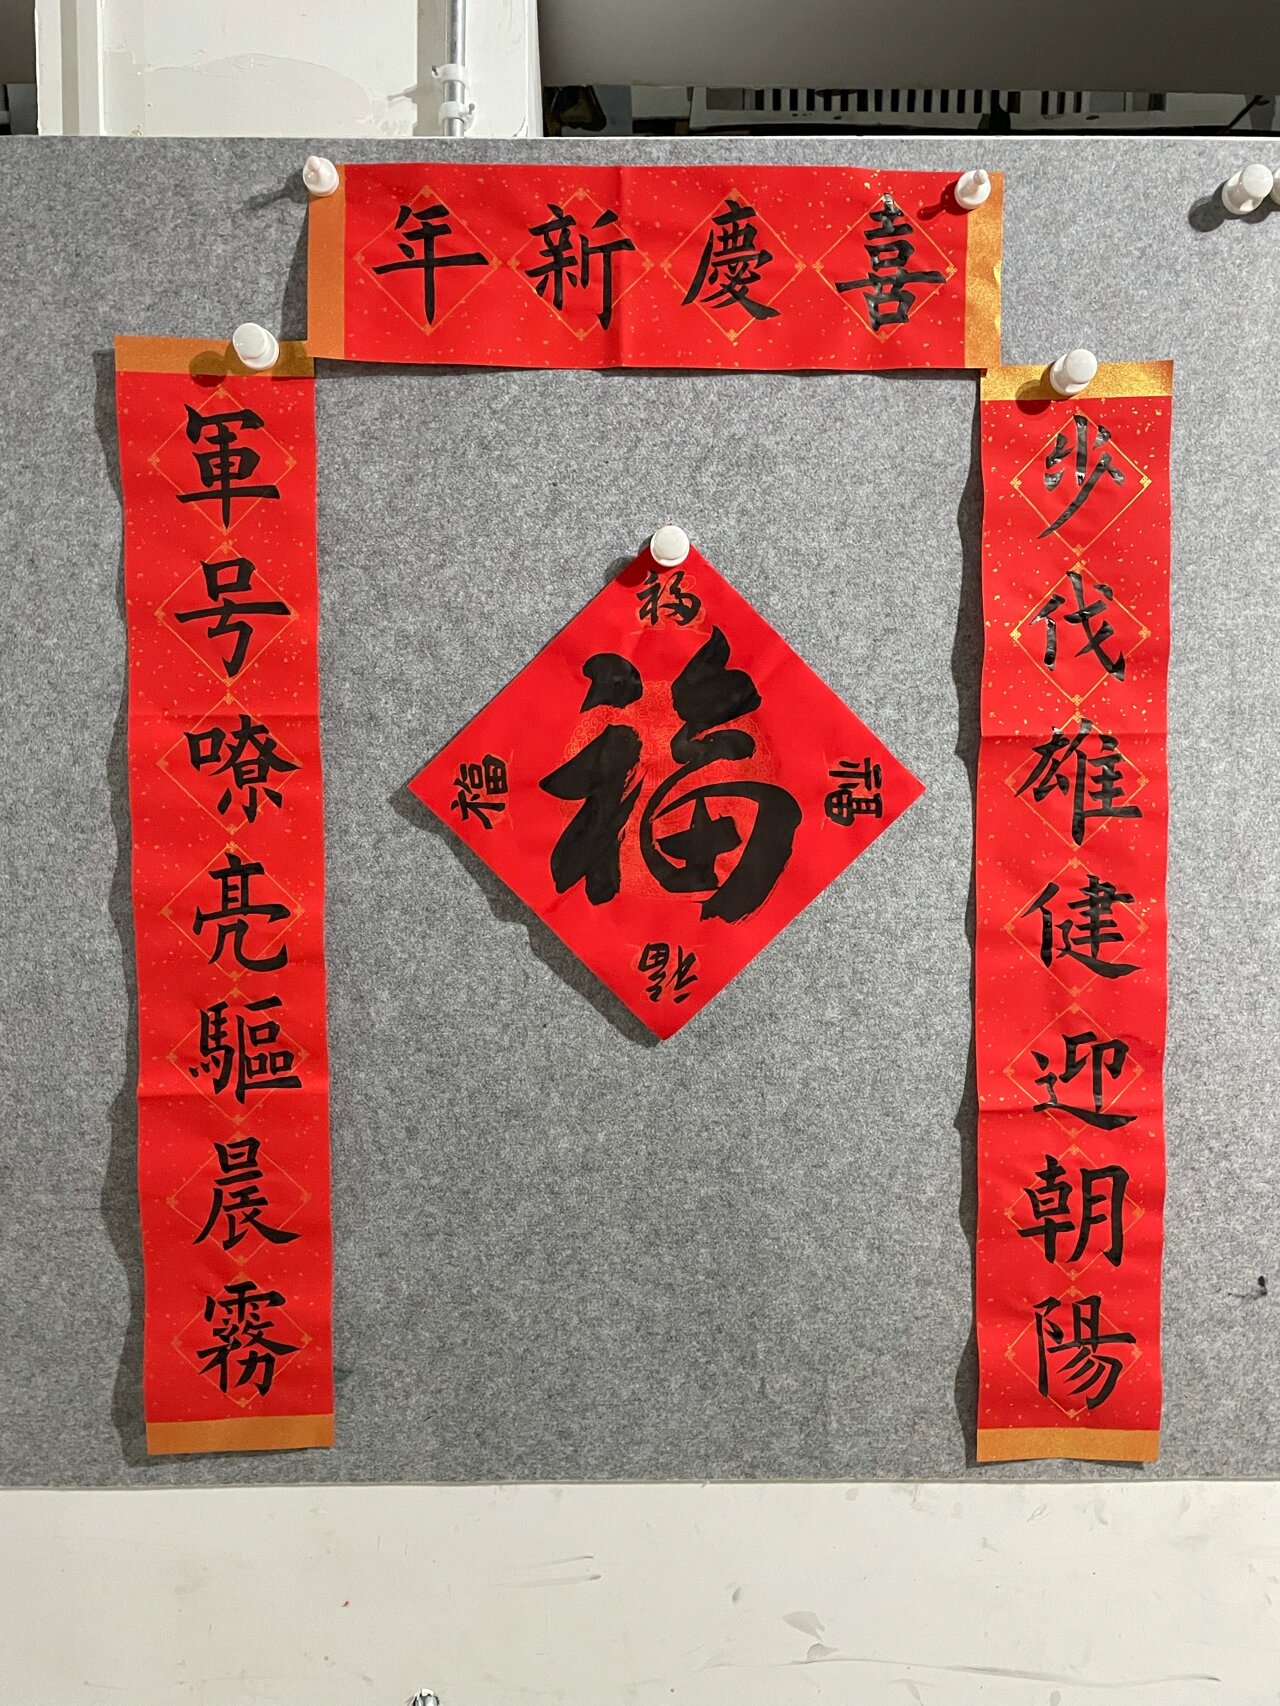 喜慶新年
步伐雄健迎朝陽
軍号嘹亮驅晨霧
福
福
福
福
福